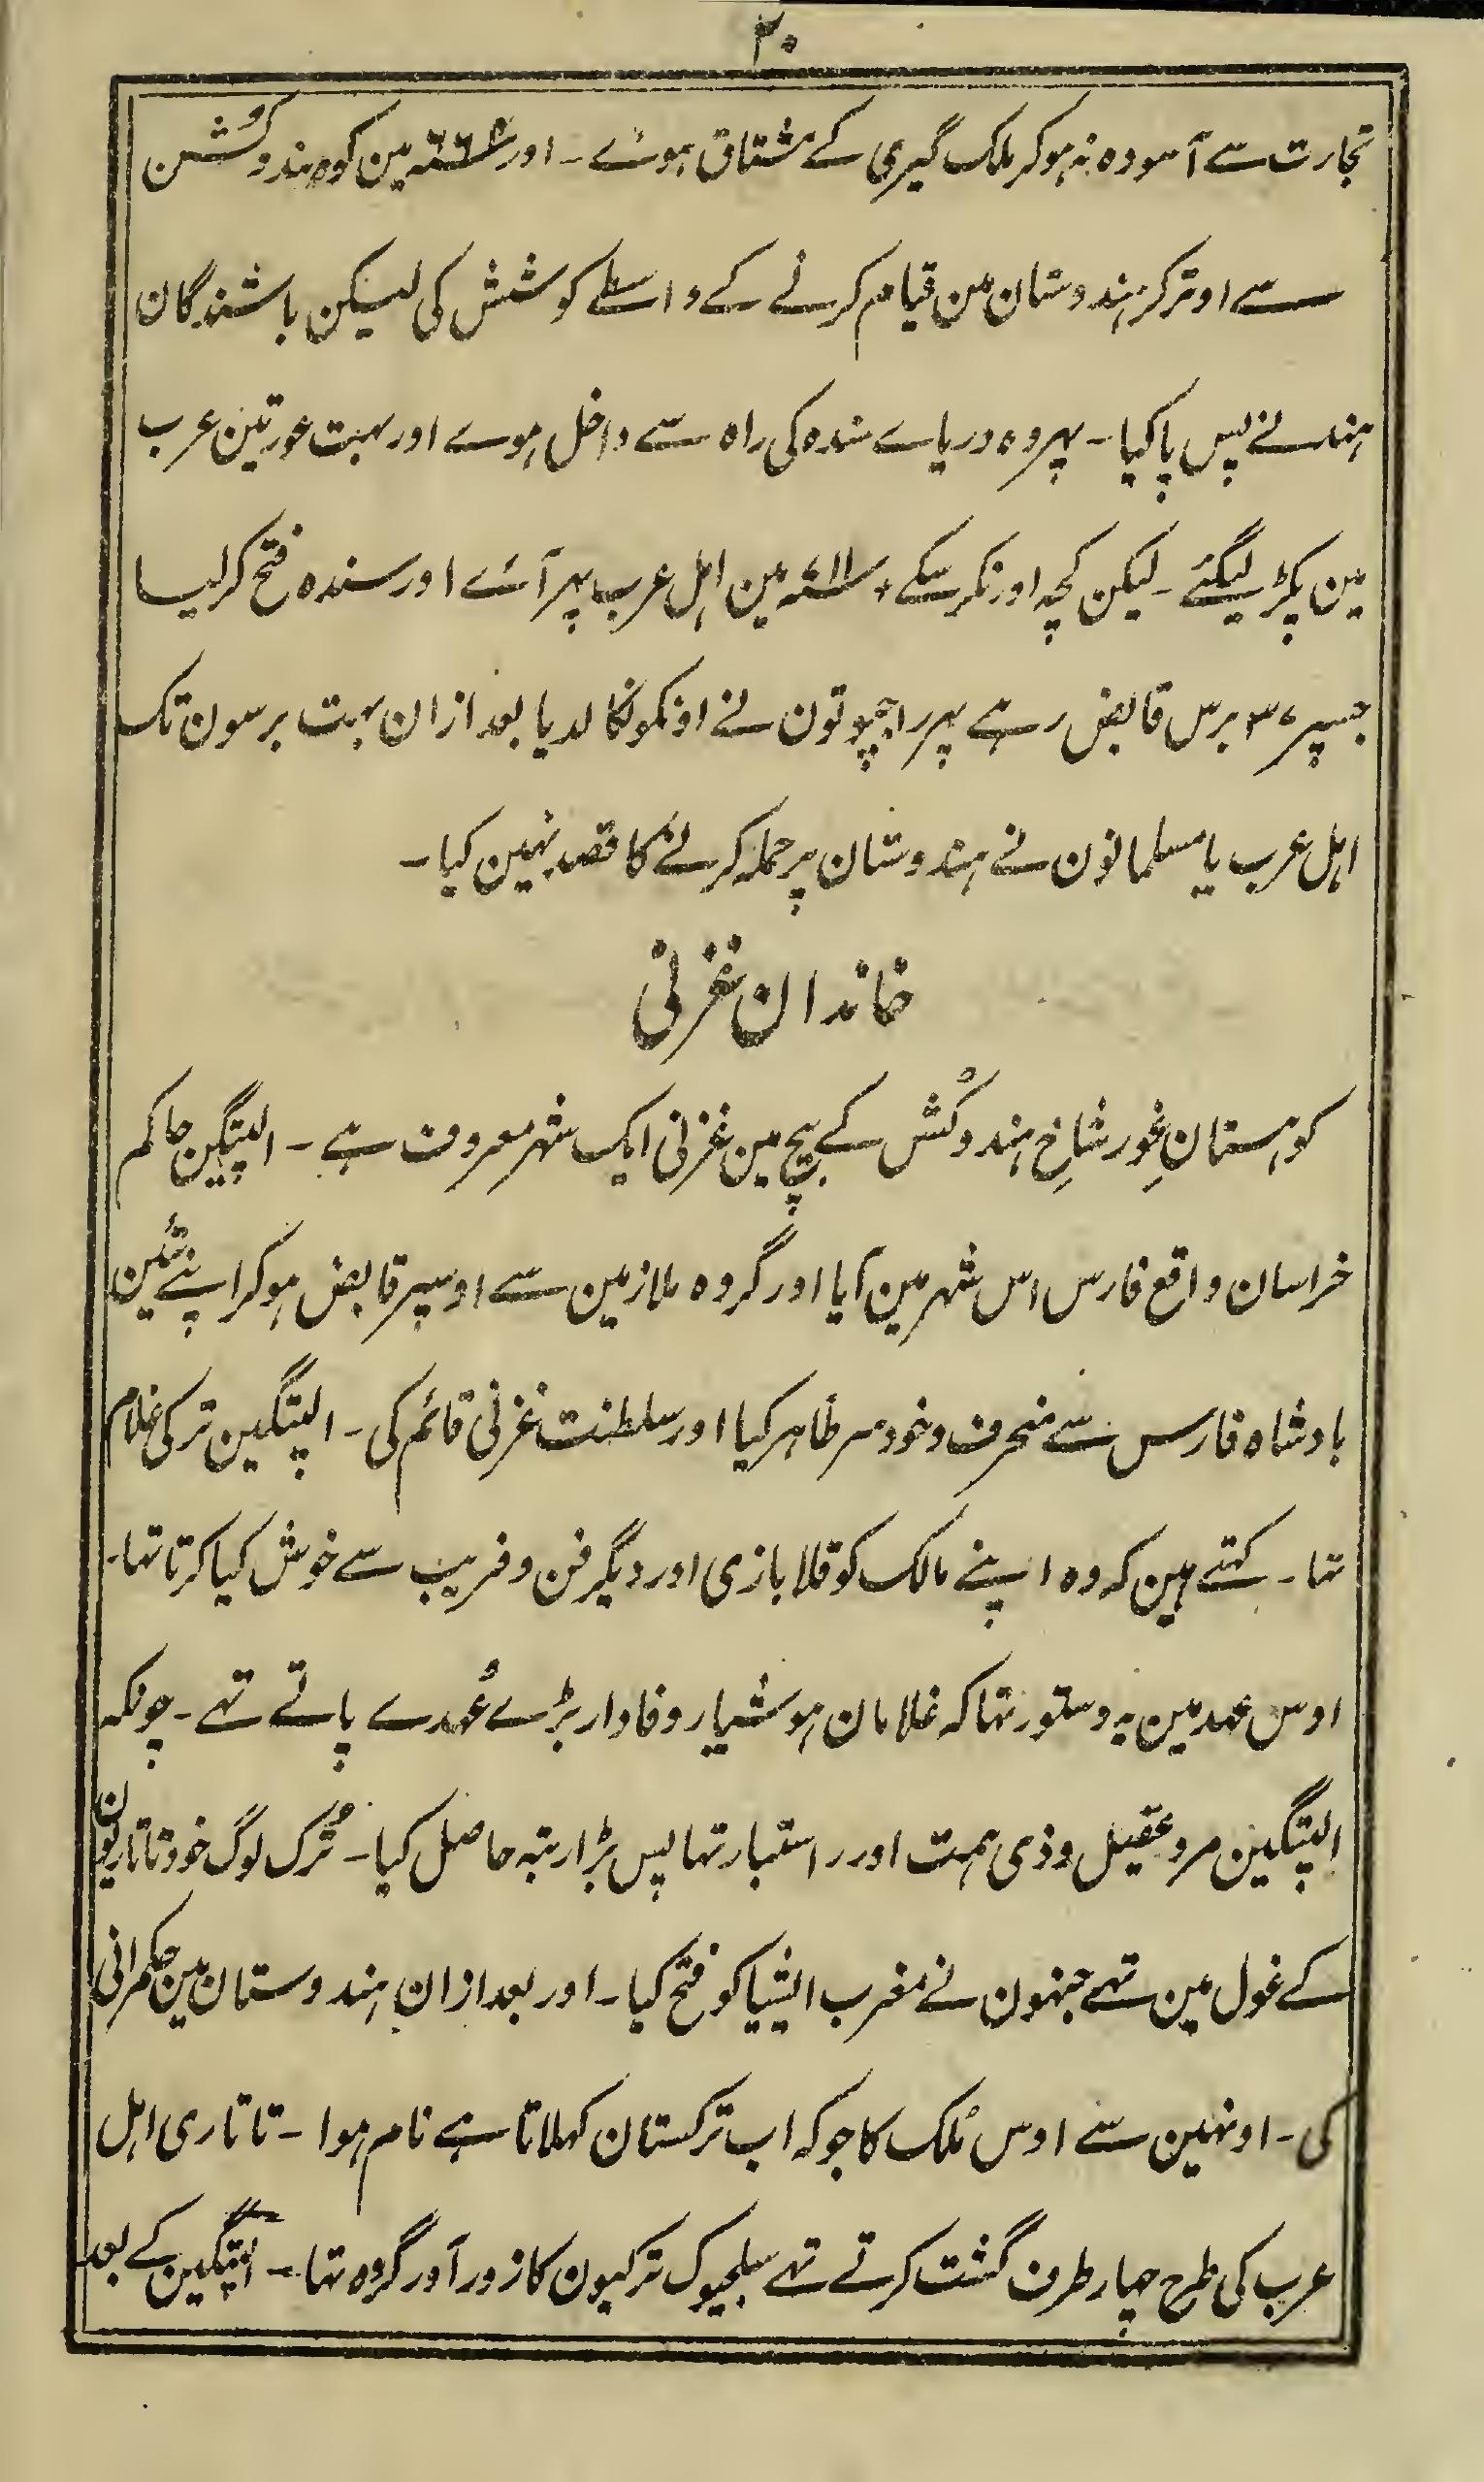 ۳۰
تجارت سے آسودہ نہ ہوکر ملک گیری کے مشتاق ہوئے ۔ اور ۶۶۴ء مین کوہ ہندوکُش
سے اوتر کر ہندوستان مین قیام کرنے کے واسطے کوشش کی لیکن باشندگان
ہند نے پس پا کیا ۔ پہر وہ دریاے سندہ کی راہ سے داخل ہوے اور بہت عورتین عرب
مین پکڑ لیگئے ۔ لیکن کچہ اور نکر سکے ، ۷۱۱ء مین اہل عرب پہر آئے اور سندہ فتح کرلیا
جسپر ۳۷ برس قابض رہے پہر راجپوتون نے اونکو نکالدیا بعد ازان بہت برسون تک
اہل عرب یا مسلمانون نے ہندوستان پر حملہ کرنے کا قصد نہین کیا ۔
خاندان غزنی
کوہستانِ غور شاخِ ہندوکُش کے بیچ مین غزنی ایک شہر معروف ہے ۔ الپتگین حاکم
خراسان واقع فارس اس شہر مین آیا اور گروہ ملازمین سے اوسپر قابض ہوکر اپنے تئین
بادشاہ فارس سے منحرف و خود سر ظاہر کیا اور سلطنت غزنی قائم کی ۔ الپتگین ترکی غلام
تہا ۔ کہتے ہین کہ وہ اپنے مالک کو قلابازی اور دیگر فن و فریب سے خوش کیا کرتا تہا ۔
اوس عہد مین یہ دستور تہا کہ غلامان ہوشیار وفادار بڑے عُہدے پاتے تہے ۔ چونکہ
الپتگین مرد عقیل و ذی ہمت اور راستباز تہا پس بڑا رتبہ حاصل کیا ۔ تُرک لوگ خود تاتاریون
کے غول مین تہے جنہون نے مغرب ایشیا کو فتح کیا ۔ اور بعد ازان ہندوستان مین حکمرانی
کی ۔ اونہین سے اوس مُلک کا جو کہ اب ترکستان کہلاتا ہے نام ہوا ۔ تاتاری اہل
عرب کی طرح چہار طرف گشت کرتے تہے سلجیوک ترکیون کا زورآور گروہ تہا ۔ الپتگین کے بعد